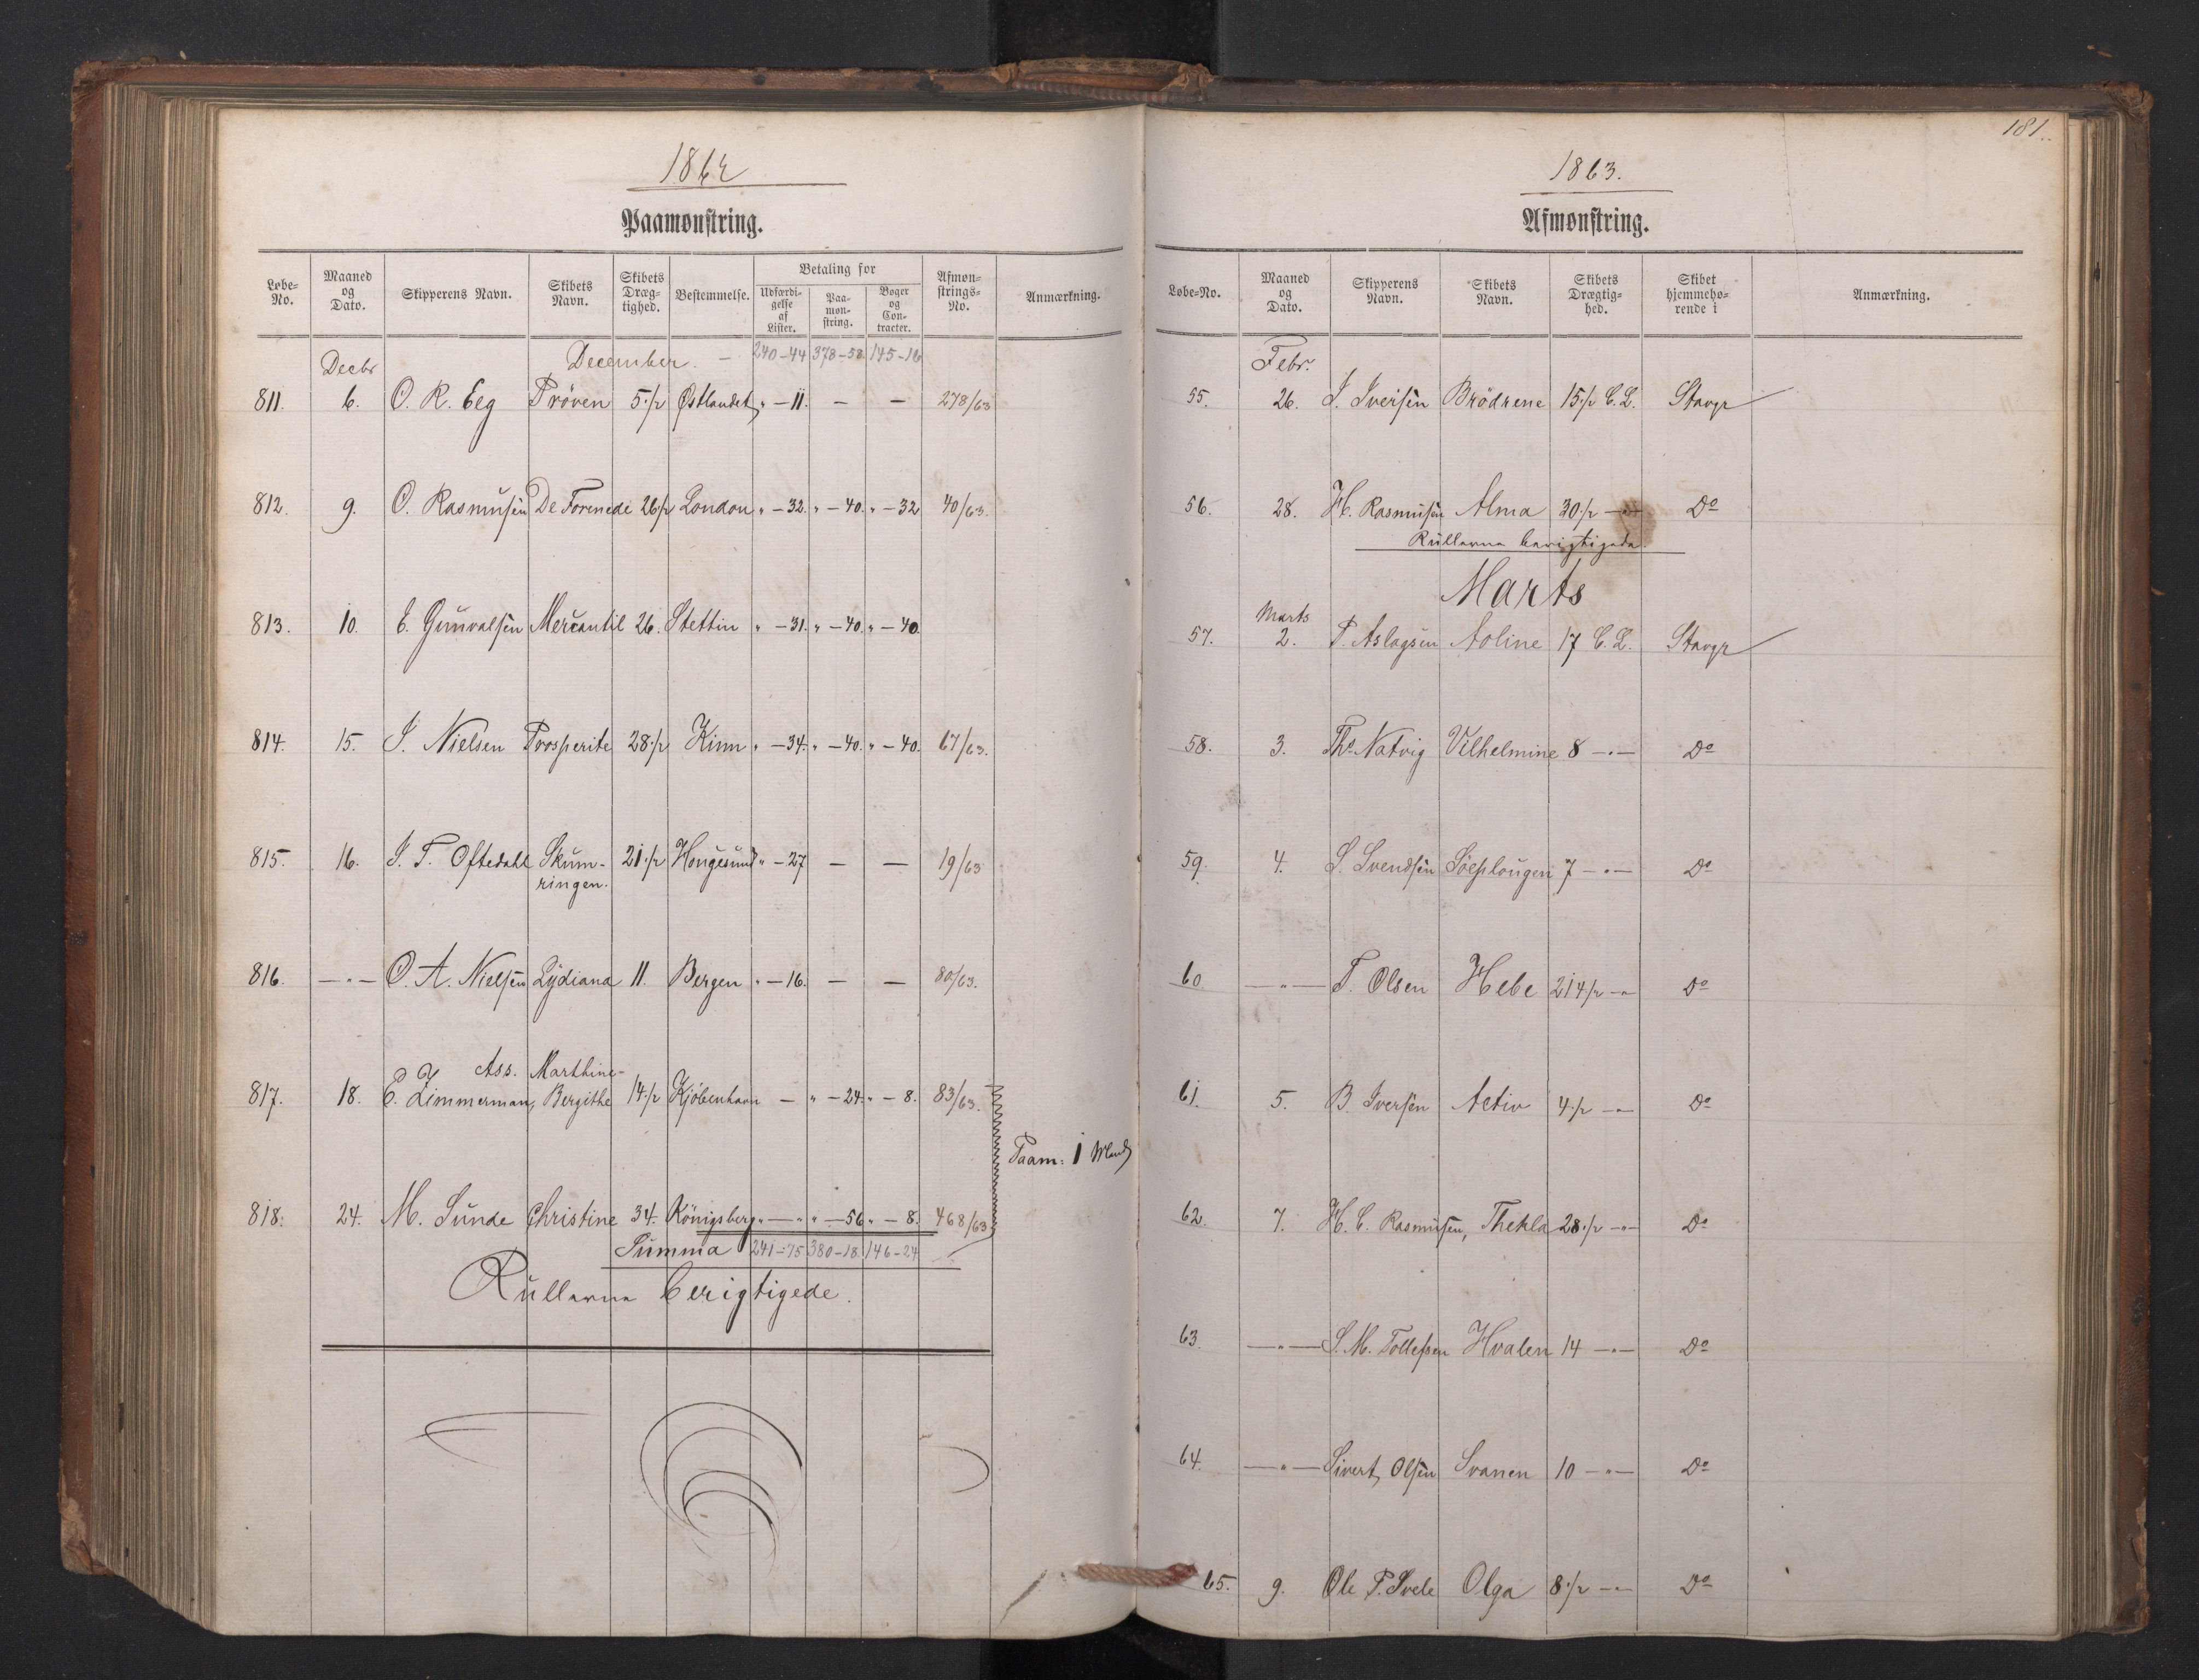 1862
Paamønstring.
Løbe-No. Maaned og Dato. Skipperens Navn. Skibets Navn. Skibets Dræg-tighed. Bestemmelse. Betaling for Udfærdi-gelse af Lister. Paa-møn-string. Bøger og Con-tracter. Afmøn-strings-No. Anmærkning.
Decbr December. — 240-44 378-58 145-16
811. 6. O. R. Eeg Pröven 5½ Østlandet " — 11. — — 278/63
812. 9. O. Rasmusen De Forenede 26½ London " — 32. " — 40. " — 32 40/63.
813. 10. E. Gunvalsen Mercantil 26. Stettin " — 31. " — 40. " — 40.
814. 15. J. Nielsen Prosperite 28½ Kinn " — 34. " — 40. " — 40. 67/63.
815. 16. J. T. Oftedahl Skum- 21½ Hougesund " — 27 — — 19/63
ringen.
816. — " — O. A. Nielsen Lydiana 11. Bergen " — 16. — — 80/63.
Ass. Marthine-
817. 18. E. Zimmerman, Bergithe 14½ Kjöbenhavn — " — 24. " — 8. 83/63.
Paam: 1 Mand
818. 24. M. Sunde Christine 34. Königsberg " — " " — 56 " — 8. 468/63
Summa 241-75 380-18. 146-24
Rullerne berigtigede.
181.
1863.
Afmønstring.
Løbe-No. Maaned og Dato. Skipperens Navn. Skibets Navn. Skibets Drægtig-hed. Skibet hjemmehø-rende i Anmærkning.
Febr.
55. 26. J. Iversen Brödrene 15½ C. L. Stavgr
56. 28. H. Rasmusen Alma 30½ — " — Do
Rullerne berigtigede.
Marts
Marts
57. 2. P. Aslagsen Aoline 17 C. L. Stavgr
58. 3. Ths. Natvig Vilhelmine 8 — " — Do
59. 4. S. Svendsen Söeplougen 7 — " — Do
60 — " — T. Olsen Hebe 214½ — " — Do
61. 5. B. Iversen Activ 4½ — " — Do
62. 7. H. C. Rasmusen, Thekla 28½ — " — Do
63. — " — S. M. Tollefsen Hvalen 14 — " — Do
64. — " — Sivert Olsen Svanen 10 — " — Do
65. 9. Ole P. Svele Olga 8½ — " — Do